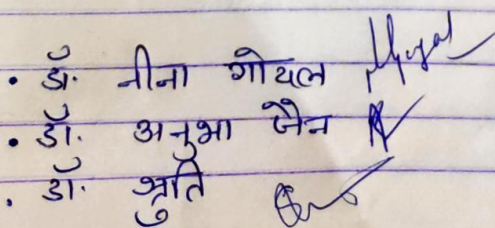 • डॉ. नीना गोयल
• डॉ. अनुभा जैन
• डॉ. श्रुति